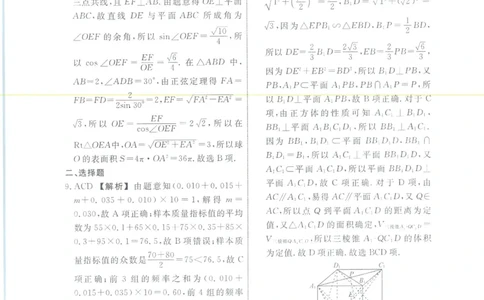 三点共线,且EF⊥AB.由题意得OE⊥平面
ABC,故直线 DE 与平面 ABC 所成角为
∠OEF 的余角,所以 sin∠OEF=√10/4,所
以 cos∠OEF=EF/OE=√6/4.在△ABD 中,
AB=2,∠ADB=30°,由正弦定理得 FA=
FB=FD=2/(2sin 30°)=2,EF=√(FA²-EA²)=
√3,所以 OE=EF/cos∠OEF=2√2,所以在
Rt△OEA中,OA=√(OE²+EA²)=3,所以球
O的表面积S=4π·OA²=36π,故选B项.
二、选择题
9.ACD 【解析】 由题意知(0.010+0.015+
m+0.035+0.010)×10=1,解得 m=
0.030,故A项正确;样本质量指标值的平均
数为55×0.1+65×0.15+75×0.35+85×
0.3+95×0.1=76.5,故B项错误;样本质
量指标值的众数是(70+80)/2=75<76.5,故C
项正确;前 3 组的频率之和为(0.010+
0.015+0.035)×10=0.60,前4组的频率
√3,因为△EPB₁∽△EBD,B₁P=1/2BD,
所以DE=2/3B₁D=2√3/3,EB=2/3PB=√6/3,
因为DE²+EB²=BD²,所以B₁D⊥PB,又
PB,A₁P⊂平面A₁PB,PB∩A₁P=P,所
以B₁D⊥平面A₁PB,故B项正确.对于C
项,由正方体的性质可知 A₁C₁⊥B₁D₁,
BB₁⊥平面A₁B₁C₁D₁,所以BB₁⊥A₁C₁.
因为 BB₁,B₁D₁⊂平面 BB₁D₁D,BB₁∩
B₁D₁=B₁,所以A₁C₁⊥平面BB₁D₁D,又
A₁C₁⊂平面A₁C₁D,所以平面BB₁D₁D⊥
平面 A₁C₁D,故 C 项正确.对于 D 项,由
AC∥A₁C₁,易得AC∥平面A₁C₁D,又Q∈
AC,所以点 Q 到平面 A₁C₁D 的距离为定
值,又△A₁C₁D的面积确定,
所以三棱锥A₁-QC₁D的体积
为定值,故D项正确.故选BCD项.
D₁
C₁
P
A₁
B₁